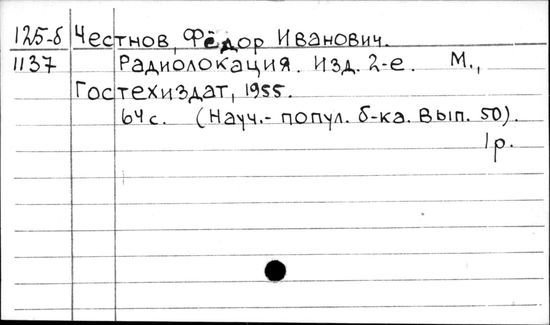 125-б Честнов, Фёдор Иванович.
1137 Радиолокация. Изд. 2-е. М.,
Гостехиздат, 1955.
64 с. (Науч.- попул. б-ка. Вып. 50).
1р.